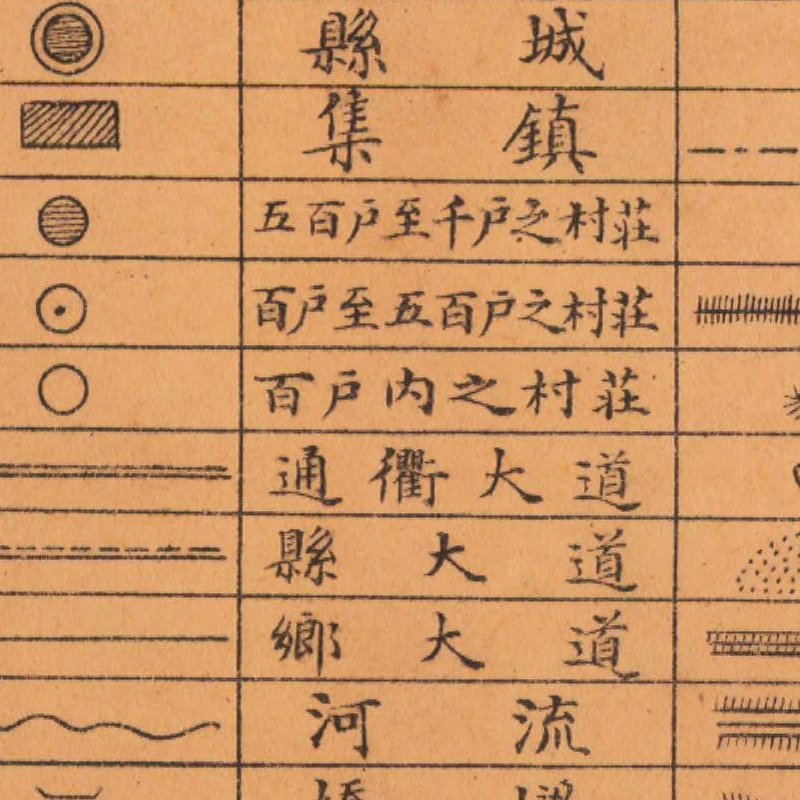 縣城
集鎮
五百戶至千戶之村莊
百戶至五百戶之村莊
百戶內之村莊
通衢大道
縣大道
鄉大道
河流